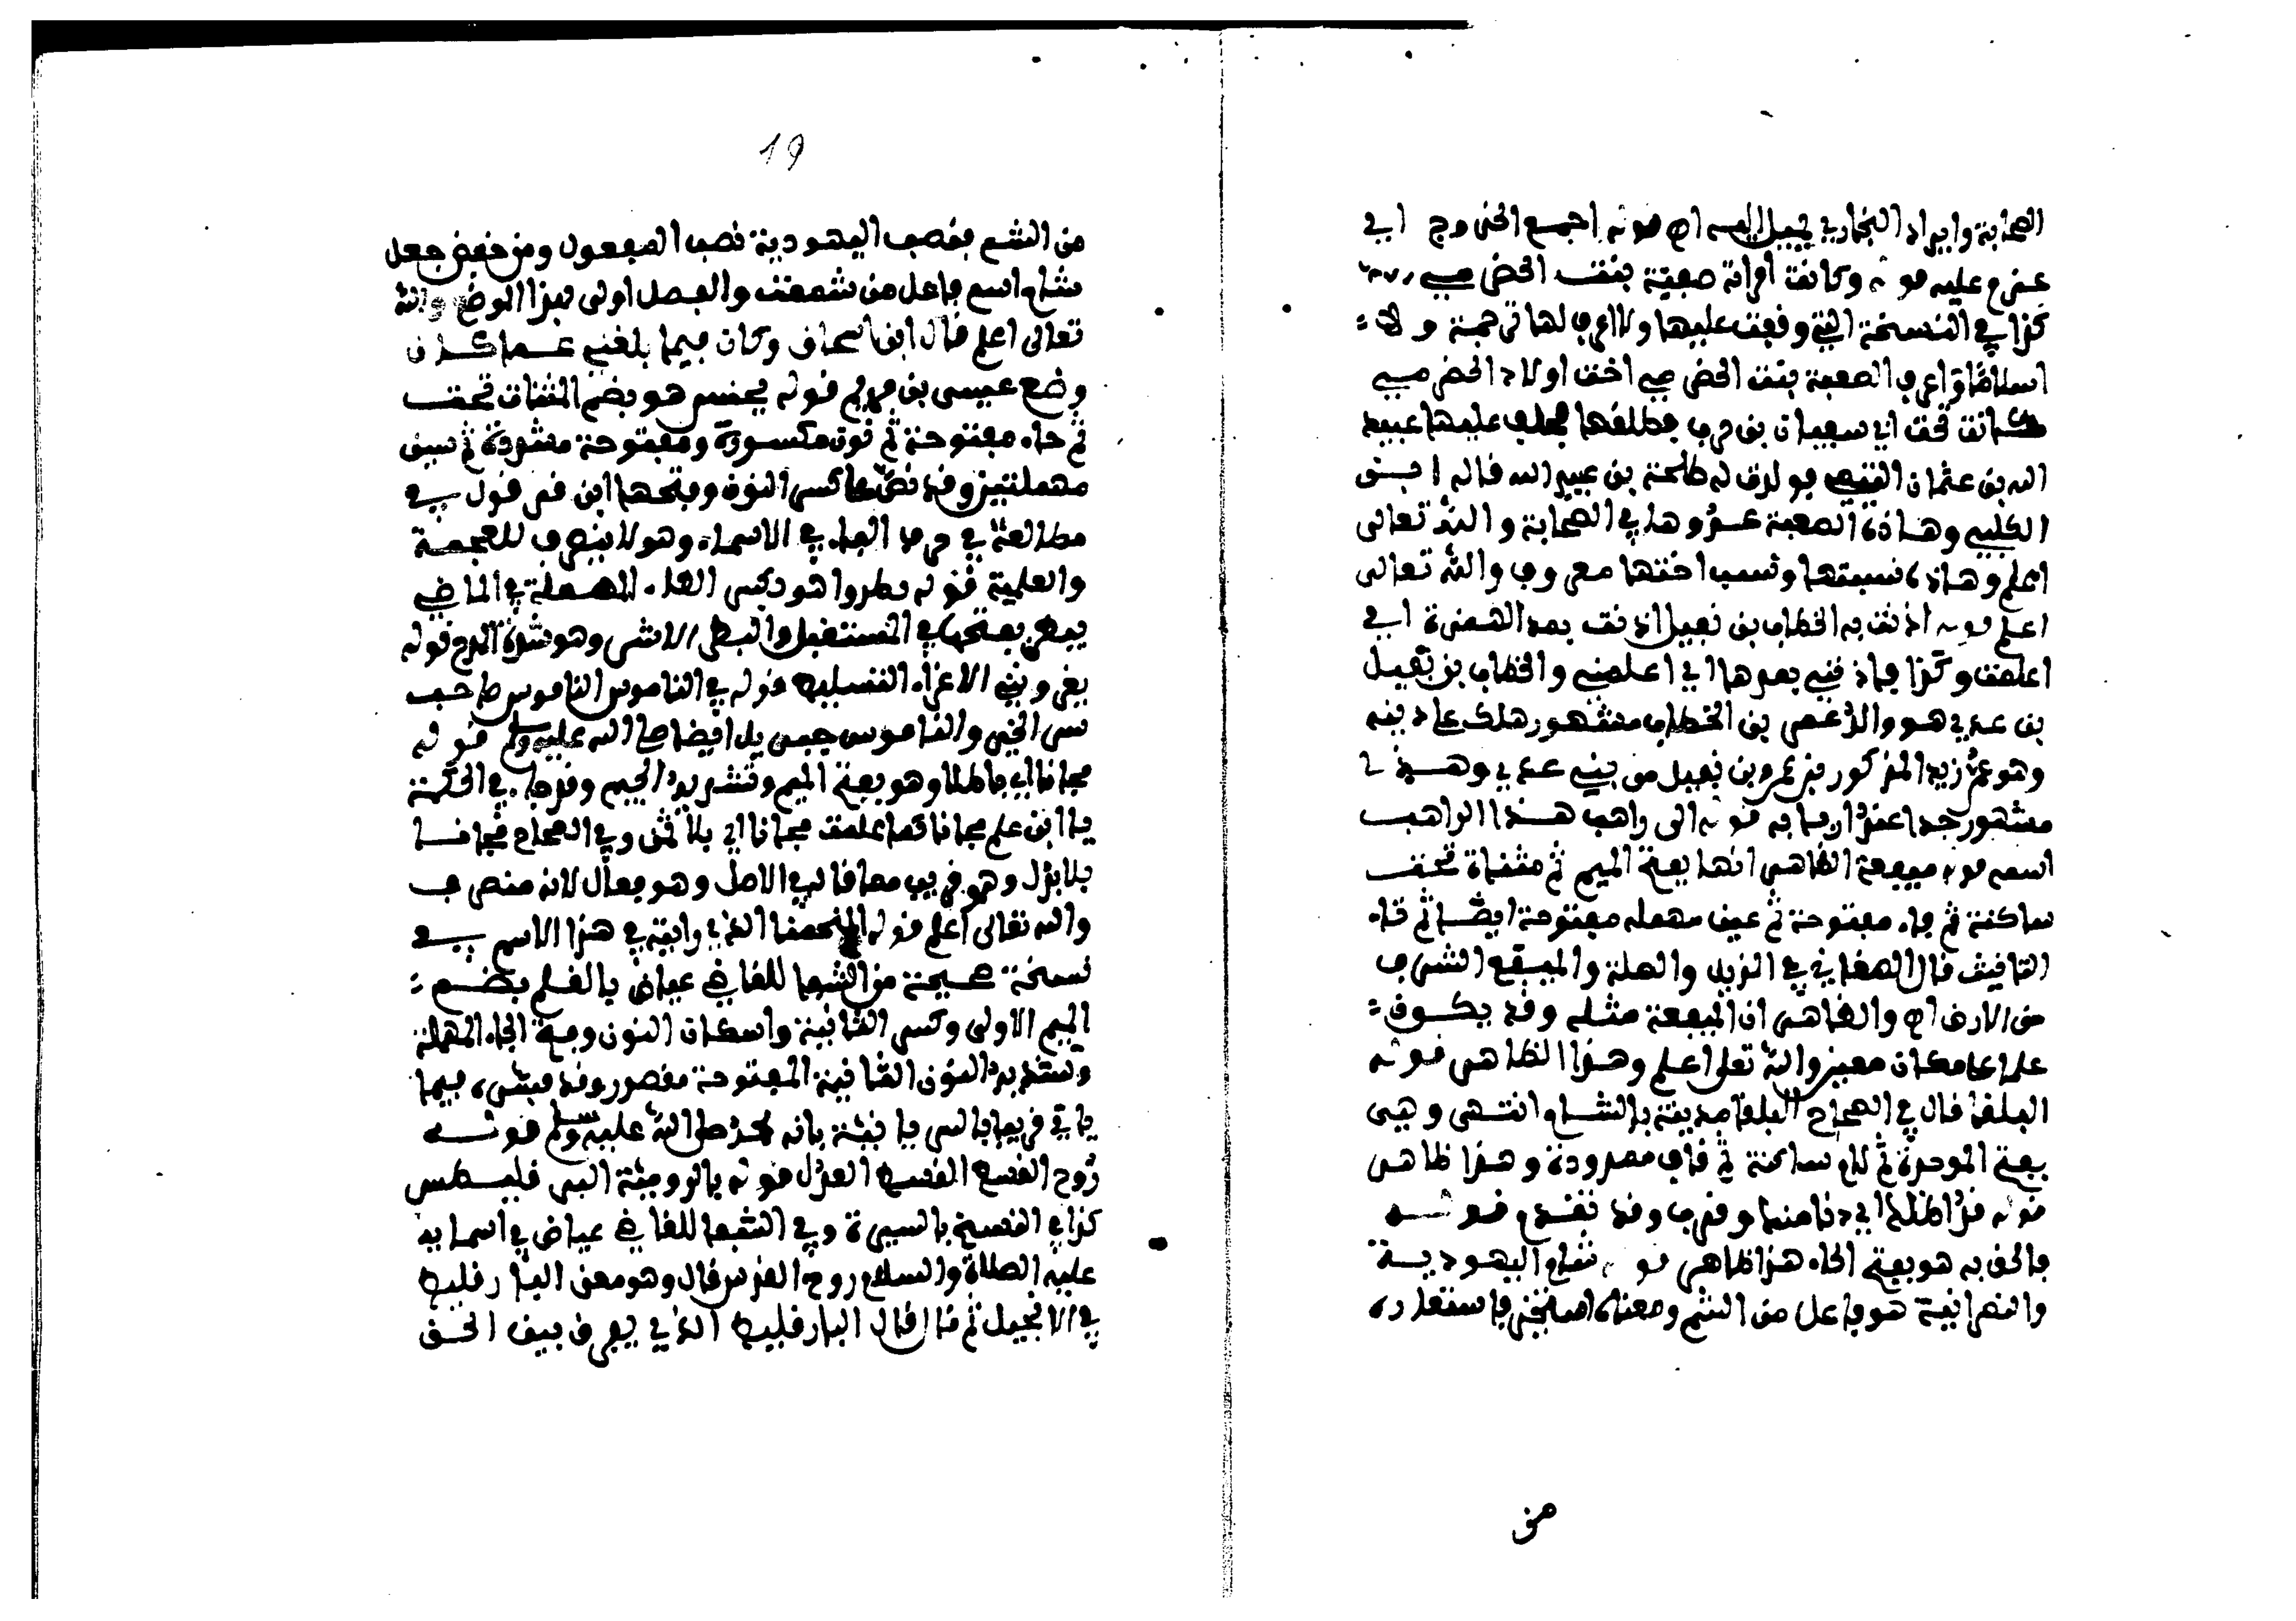 الصحابة وايراد البخاري قوله اجمع الخروج اي
عزم عليه قوله وكانت امراته صفية بنت الحضرمي
كذا في النسخة التي وقفت عليها ولا اعرف لها ترجمة ولا
اسلاما واعرف الصعبة بنت الحضرمي اخت اولاد الحضرمي
كانت تحت ابي سفيان بن حرب فطلقها فخلف عليها عبيد
الله بن عثمان التيمي فولدت له طلحة بن عبيد الله قاله ابن
الكلبي وهاذه الصعبة عدوها في الصحابة والله تعالى
اعلم وهاذه نسبتها ونسب اختها معروف والله تعالى
اعلم قوله اذنت به الخطاب بن نفيل اذنت بمد الهمزة اي
اعلمت وكذا فاذنيني بمدها اي اعلميني والخطاب بن نفيل
بن عدي هو والد عمر بن الخطاب مشهور هلك على دينه
وهو عم زيد المذكور بن عمرو بن نفيل من بني عدي وهذا
مشهور جدا عند اربابه قوله الى راهب هذا الراهب
اسمه قوله ميفعة الظاهر انها بفتح الميم ثم مثناة تحت
ساكنة ثم فاء مفتوحة ثم عين مهملة مفتوحة ايضا ثم تاء
التانيث قال الصغاني في الذيل والصلة والميفع الشرف
من الارض اه والظاهر ان الميفعة مثله وقد يكون
علما على مكان معين والله تعلى اعلم وهذا الظاهر قوله
البلقا قال في الصحاح البلقا مدينة بالشام انتهى وهي
بفتح الموحدة ثم لام ساكنة ثم قاف ممدودة وهذا ظاهر
قوله قد اظلك اي دنا منك وقرب وقد تقدم قوله
فالحق به هو بفتح الحاء هذا ظاهر قوله شام اليهودية
والنصرانية هو فاعل من الشم ومعناه استخبر فاستعاره
من
19
من الشم فنصب اليهودية نصب المفعول ومن خفض جعل
شام اسم فاعل من شممت والفعل اولى بهذا الموضع والله
تعالى اعلم قال ابن اسحاق وكان فيما بلغني عما كان
وضع عيسى بن مريم قوله يحنس هو بضم المثناة تحت
ثم حاء مفتوحة ثم نون مكسورة ومفتوحة مشددة ثم سين
مهملتين وقد نص على كسر النون وفتحها ابن قرقول في
مطالعه في حرف الياء في الاسماء وهو لا ينصرف للعجمة
والعلمية قوله بطروا هو بكسر الطاء المهملة في الماضي
يبطر بفتحها في المستقبل والبطر الاشر وهو شدة المرح قوله
يعزوني الاعزاء قوله في الناموس الناموس صاحب
سر الخير والناموس جبريل ايضا صلى الله عليه وسلم قوله
مجانا اي باطلا وهو بفتح الميم وتشديد الجيم وقد جاء في الحكمة
يا ابن علم مجانا كما علمت مجانا اي بلا ثمن وفي الصحاح مجانا
بلا بدل وهو قريب مما قاله في الاصل وهو فعال لانه منصرف
والله تعالى اعلم قوله المنحمنا الذي رايته في هذا الاسم في
نسخة صحيحة من الشفا للقاضي عياض بالقلم بضم
الميم الاولى وكسر الثانية واسكان النون وفتح الحاء المهملة
وتشديد النون الثانية المفتوحة مقصور وقد فسره فيما
ياتي قريبا بالسريانية بانه محمد صلى الله عليه وسلم قوله
روح القسط القسط العدل قوله بالرومية البرقليطس
كذا في النسخ بالسيرة وفي الشفا للقاضي عياض في اسمايه
عليه الصلاة والسلام روح القدس قال وهو معنى البارقليط
في الانجيل ثم قال قال البارقليط الذي يفرق بين الحق